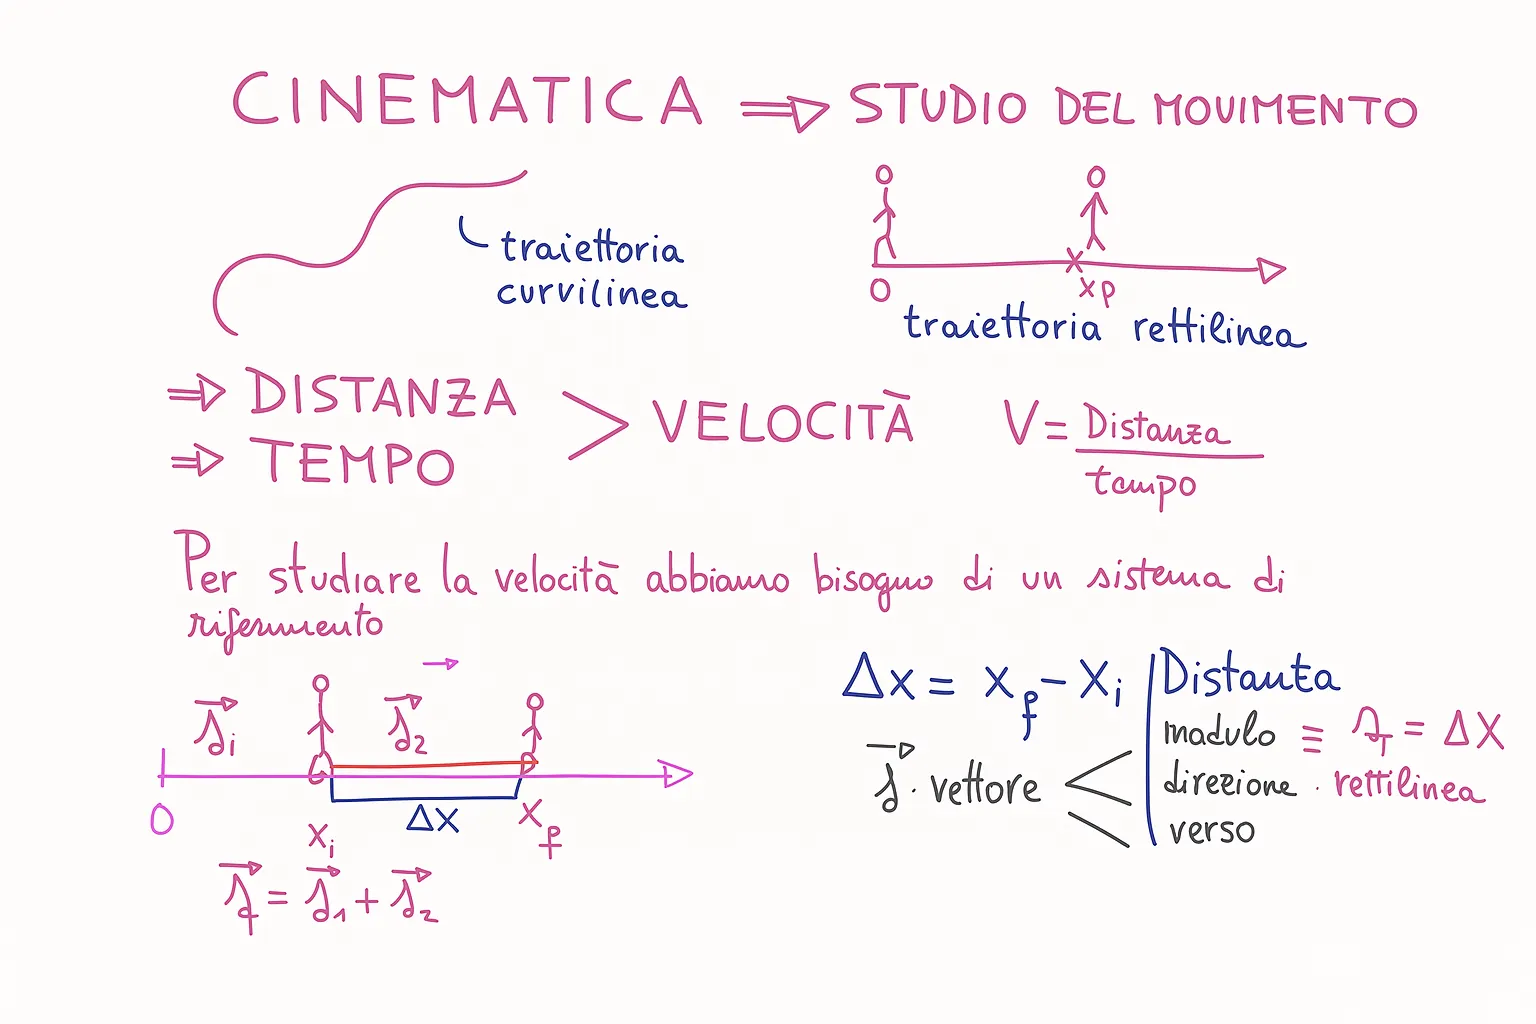 CINEMATICA ⇒ STUDIO DEL MOVIMENTO
traiettoria
curvilinea
O
xp
traiettoria rettilinea
⇒ DISTANZA
⇒ TEMPO
> VELOCITÀ
V = Distanza
tempo
Per studiare la velocità abbiamo bisogno di un sistema di
riferimento
s⃗i
s⃗2
O
xi
Δx
xf
s⃗f = s⃗1 + s⃗2
Δx = xf - xi
Distanta
s⃗ · vettore <
modulo ≡ = Δx
direzione · rettilinea
verso